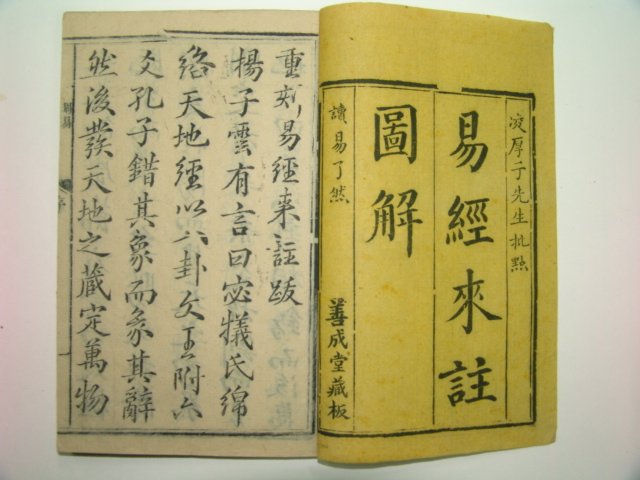 凌厚子先生批點
易經來註
圖解
讀易了然
善成堂藏板
重刻易經来註跋
楊子雲有言曰宓犧氏綿
絡天地經以八卦文王附六
爻孔子錯其象而彖其辭
然後發天地之藏定萬物
周易
序